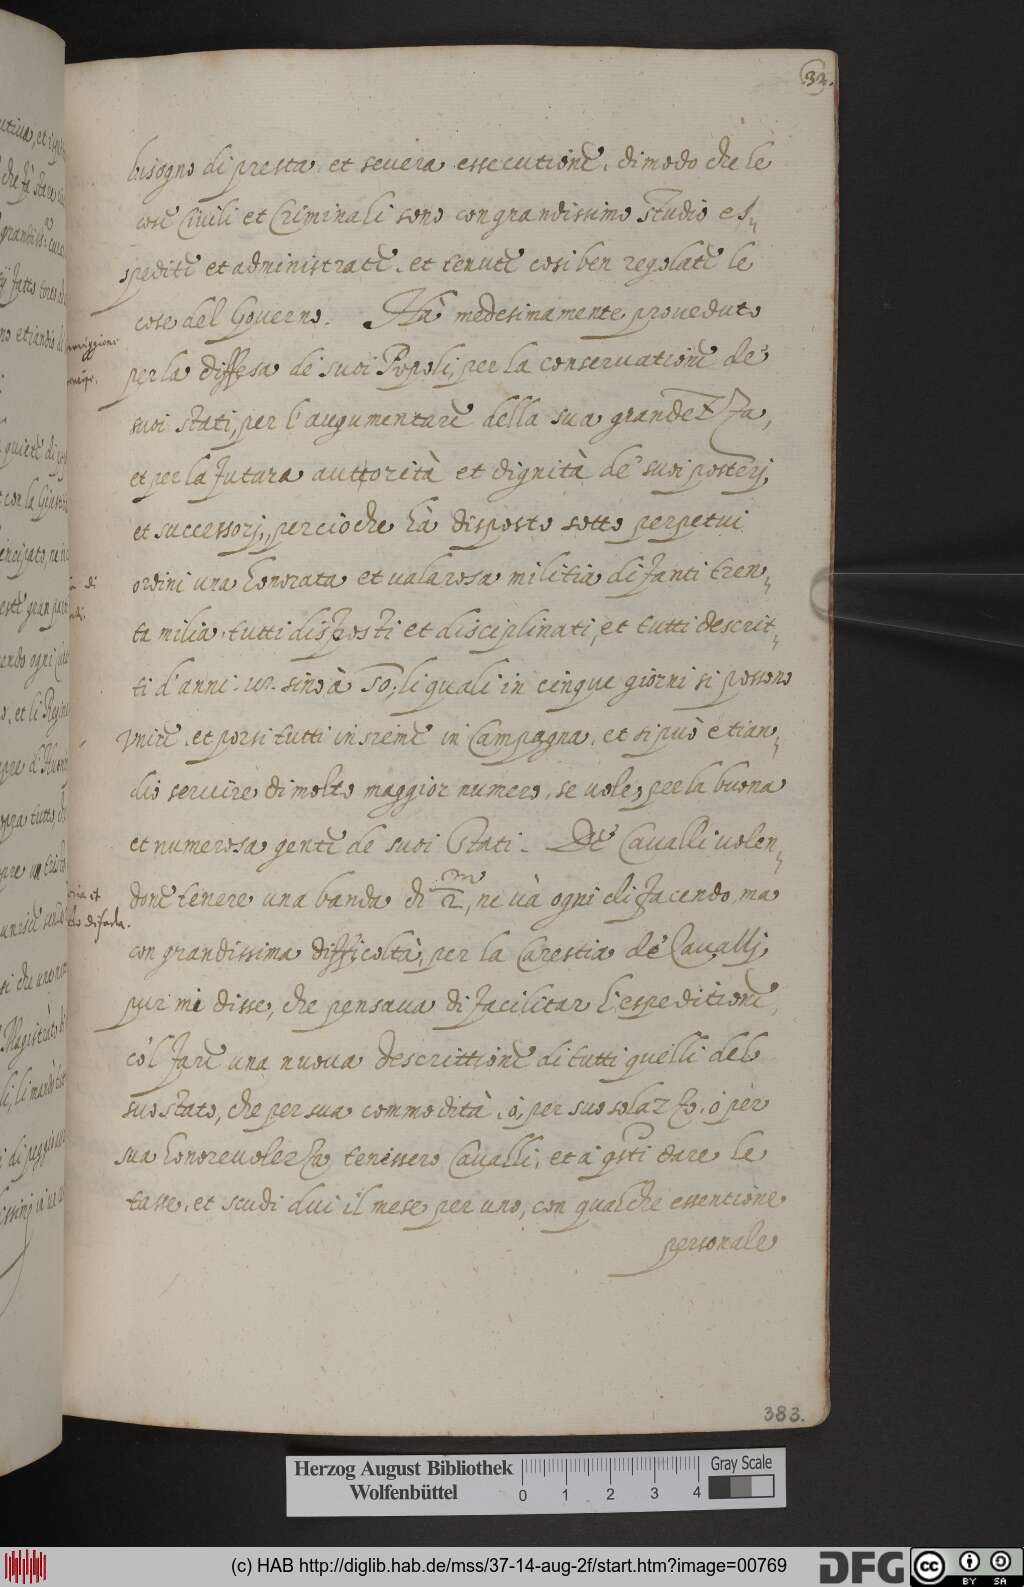 32.
bisogno di presta, et severa essecutione, di modo che le
cose Civili et Criminali sono con grandissimo studio es,,
spedite et administrate, et tenute cosi ben regolate le
cose del Governo. Hà medesimamente proveduto
per la diffesa de suoi Popoli, per la conservatione de'
suoi stati, per l'augumentare della sua grandezza,
et per la futura auttorità et dignità de' suoi posterj,
et successorj, percioche hà disposto sotto perpetui
ordini una honorata et valarosa militia di fanti tren,,
ta milia, tutti disposti et disciplinati, et tutti descrit,,
ti d'anni sino à 50, li quali in cinque giorni si possono
Vnire, et porsi tutti insieme in Campagna, et si può etian,,
dio servire di molto maggior numero, se vole, per la buona
et numerosa gente de suoi Stati. De Cavalli volen,,
done tenere una banda di m/2, ne và ogni di facendo, ma
con grandissima difficoltà, per la Carestia de' Cavallj,
pur mi disse, che pensava di facilitar l'espeditione,
co'l fare una nuova descrittione di tutti quelli del
suo stato, che per sua commodità, ò, per suo solazzo, ò per
sua honorevolezza tenessero Cavalli, et à q'sti dare le
tasse, et scudi dui il mese per uno, con qualche essentione
personale
383.
Herzog August Bibliothek
Wolfenbüttel
0 1 2 3 4
Gray Scale
(c) HAB http://diglib.hab.de/mss/37-14-aug-2f/start.htm?image=00769
DFG
cc BY SA